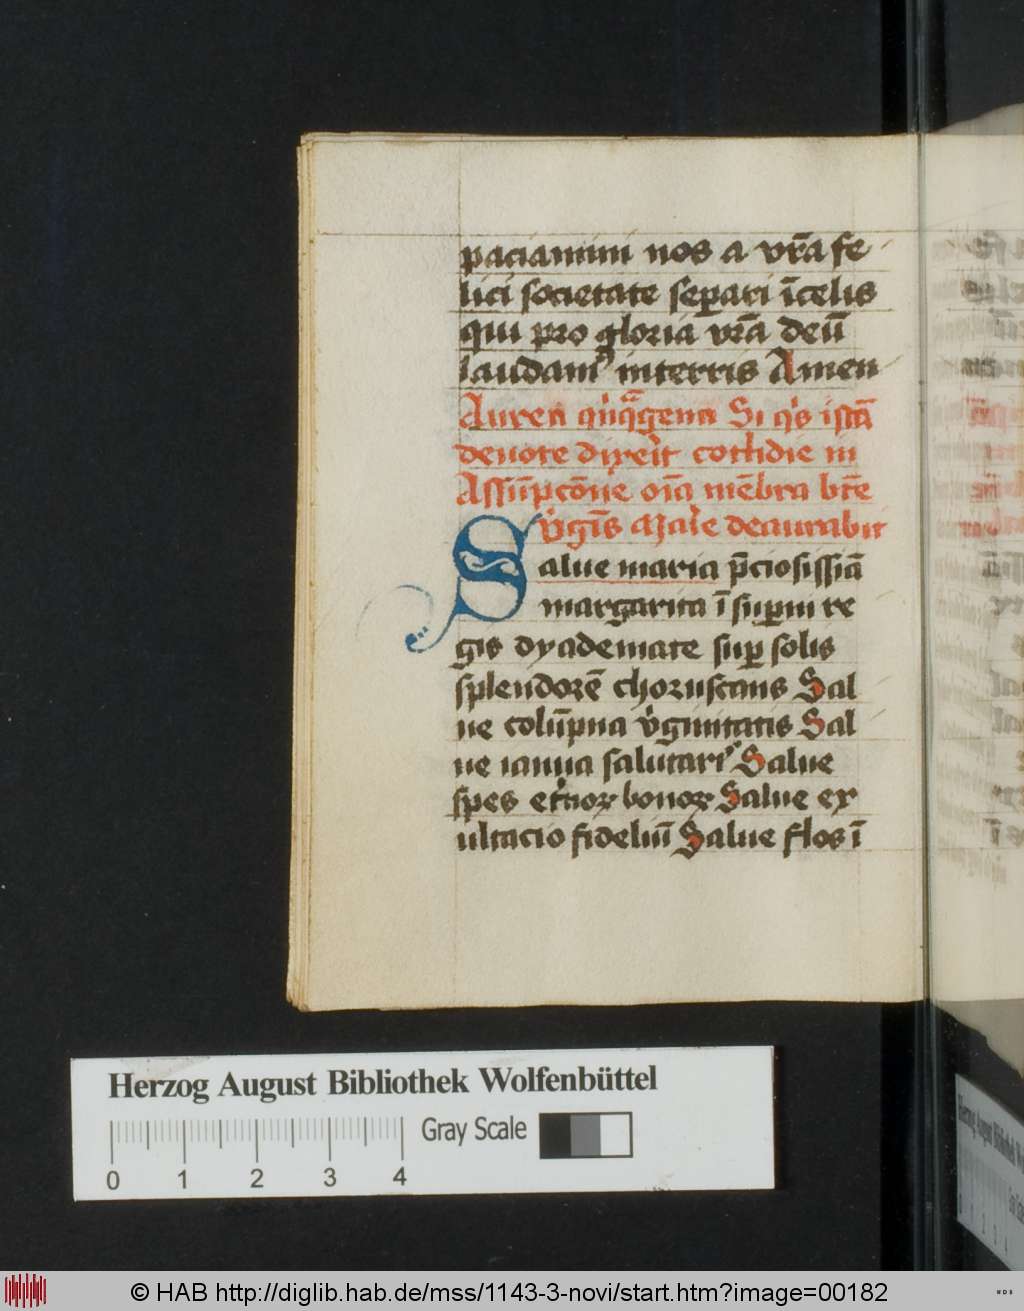 paciamini nos a vr̄a fe
lici societate sep̄ari īcelis
qui pro gloria vr̄a deū
laudamꝰ interris Amen
Aurea qͥnqᷓgena Si qͥs istā
deuote dixerit cothidie in
Assūpcōne oīa mēbra btē
vͥgīs Marie deaurabit
Salue maria p̄ciosissiā
margarita ī suꝑni re
gis dyademate suꝑ solis
splendorē choruscans Sal
ue colūpna vͥginitatis Sal
ue ianua salutarꝭ Salue
spes et̓noꝝ bonoꝝ Salue ex
ultacio fideliū Salue flos ī
Herzog August Bibliothek Wolfenbüttel
Gray Scale
0 1 2 3 4
© HAB http://diglib.hab.de/mss/1143-3-novi/start.htm?image=00182